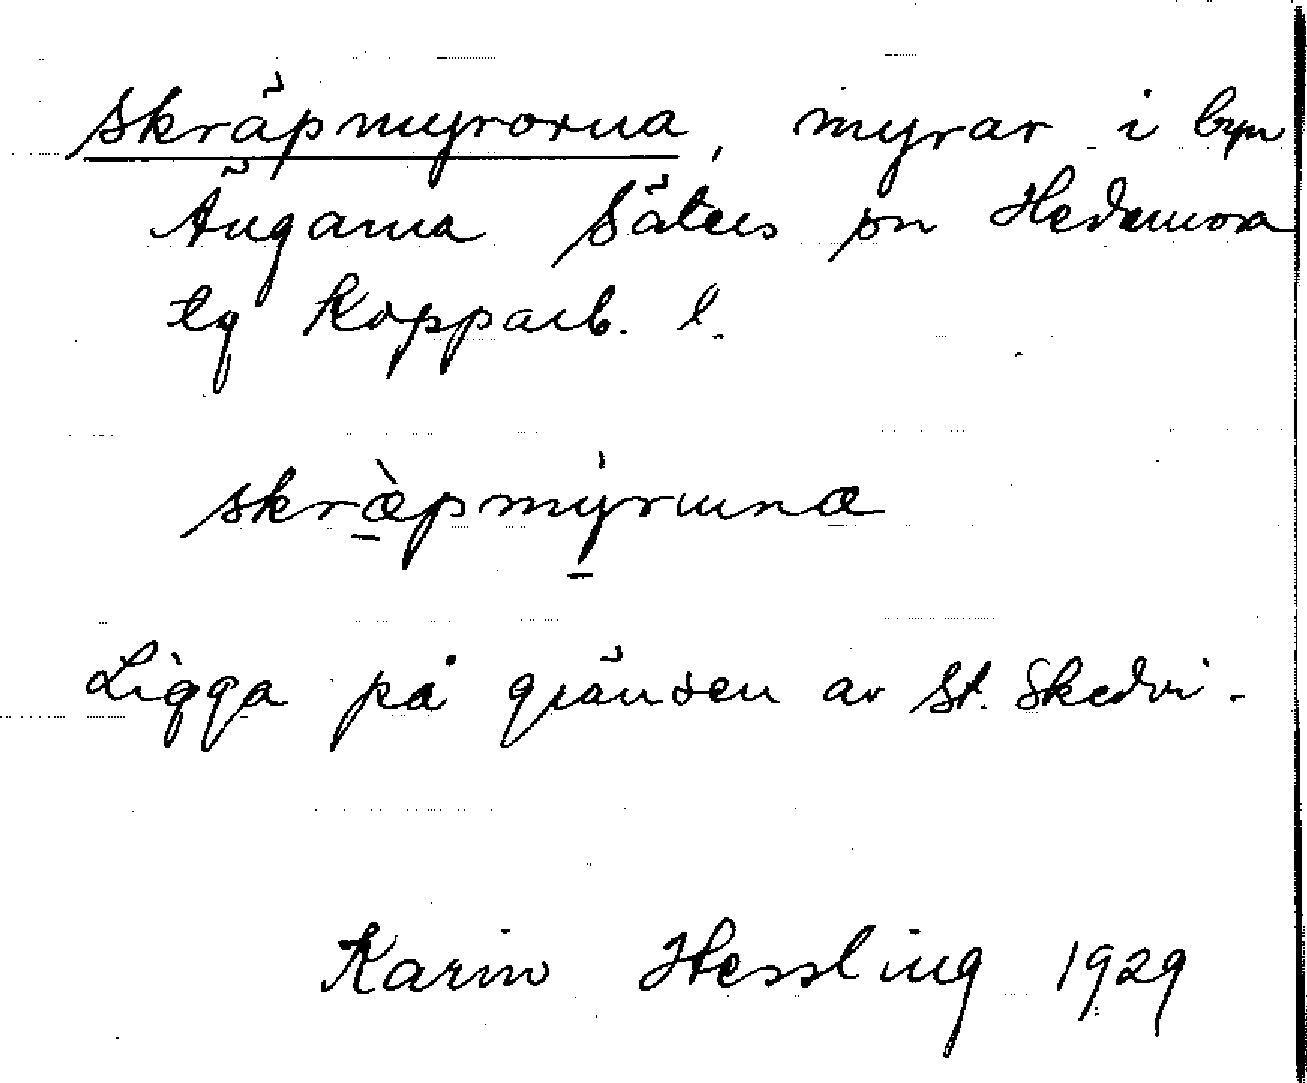 Skräpmyrorna, myrar i byn
Ängarna Säters sn Hedemora
tg Kopparb. l.
skræ̀pmýrunnæ
Ligga på gränsen av St. Skedvi.
Karin Hessling 1929